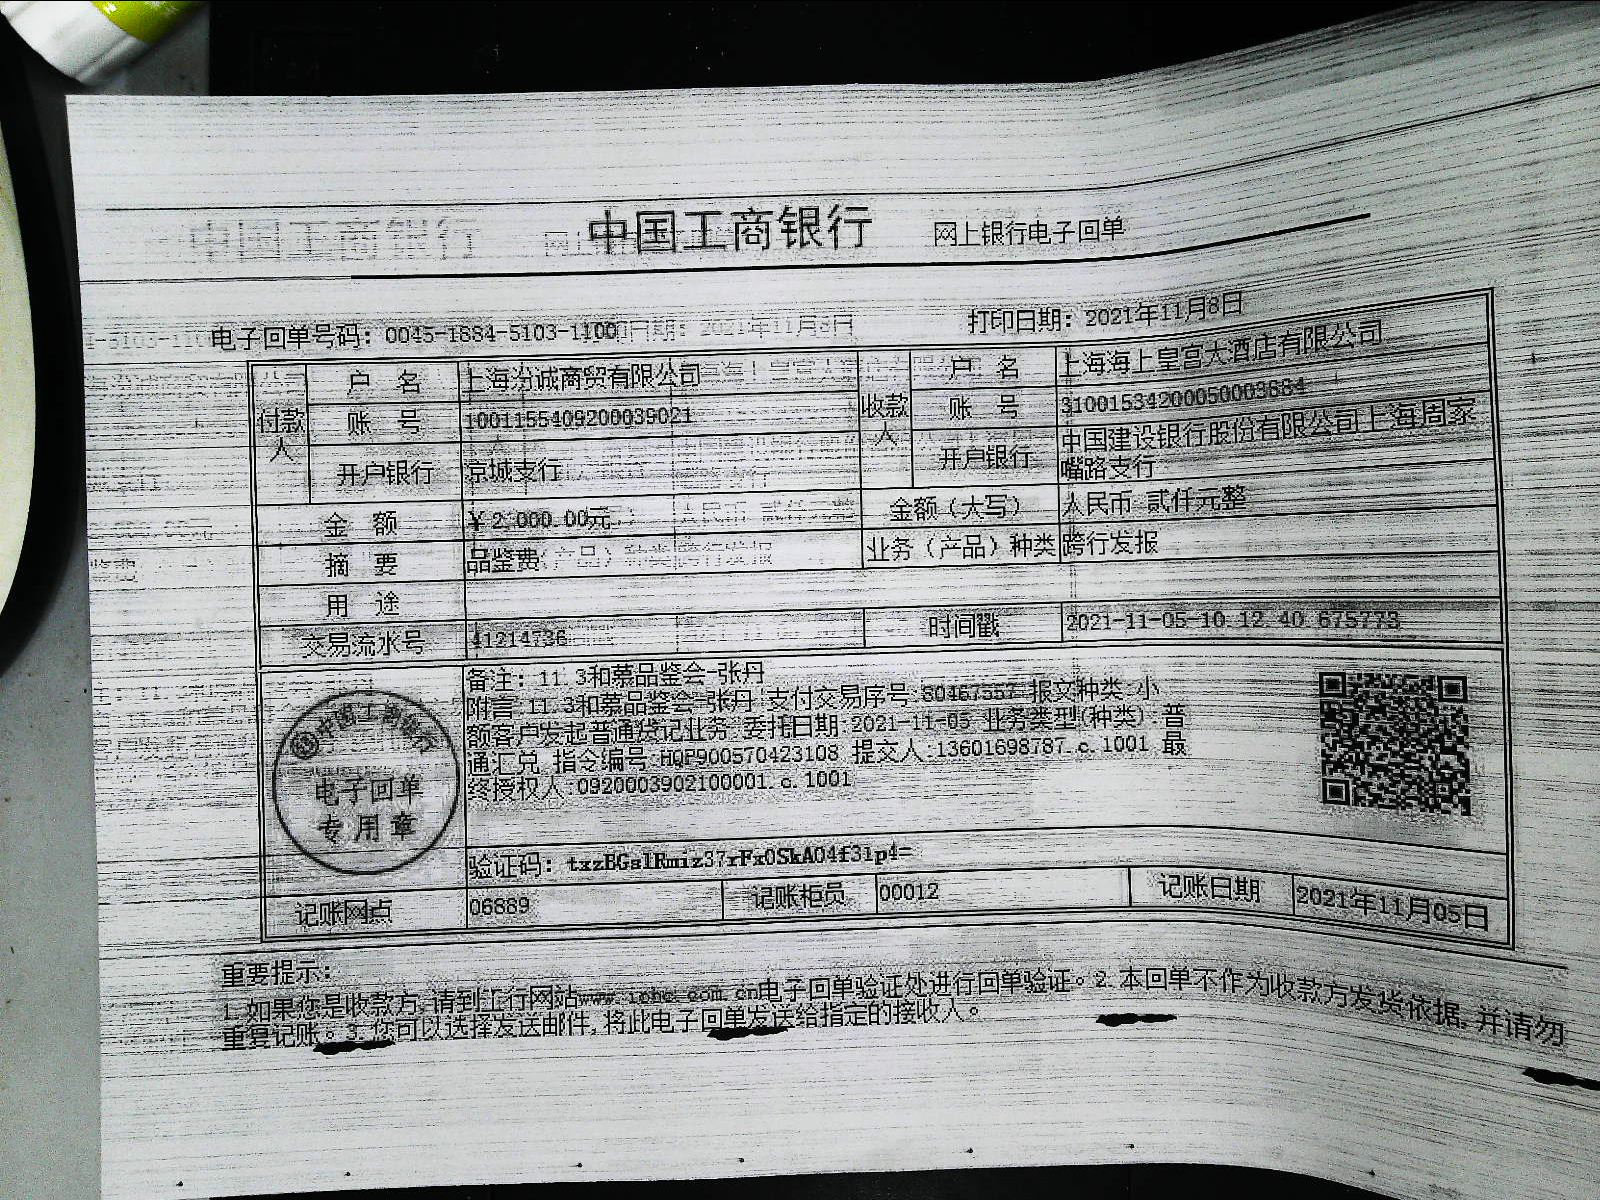 中国工商银行 网上银行电子回单
电子回单号码：0045-1884-5103-1100 打印日期：2021年11月8日
付款人 户 名 上海汾诚商贸有限公司 收款人 户 名 上海海上皇宫大酒店有限公司
账 号 1001155409200039021 账 号 31001534200050003684
开户银行 京城支行 开户银行 中国建设银行股份有限公司上海周家
嘴路支行
金 额 ￥2,000.00元 金额（大写） 人民币 贰仟元整
摘 要 品鉴费 业务（产品）种类 跨行发报
用 途
交易流水号 41214736 时间戳 2021-11-05-10.12.40.675773
备注：11.3和慕品鉴会-张丹
附言:11.3和慕品鉴会-张丹 支付交易序号:80467557 报文种类:小
额客户发起普通贷记业务 委托日期:2021-11-05 业务类型(种类):普
通汇兑 指令编号:HQP900570423108 提交人:13601698787.c.1001 最
终授权人:0920003902100001.c.1001
中国工商银行
电子回单
专用章
验证码：txzBGslRmiz37rFx0SkAO4f31p4=
记账网点 06889 记账柜员 00012 记账日期 2021年11月05日
重要提示：
1.如果您是收款方,请到工行网站www.icbc.com.cn电子回单验证处进行回单验证。2.本回单不作为收款方发货依据,并请勿
重复记账。3.您可以选择发送邮件,将此电子回单发送给指定的接收人。